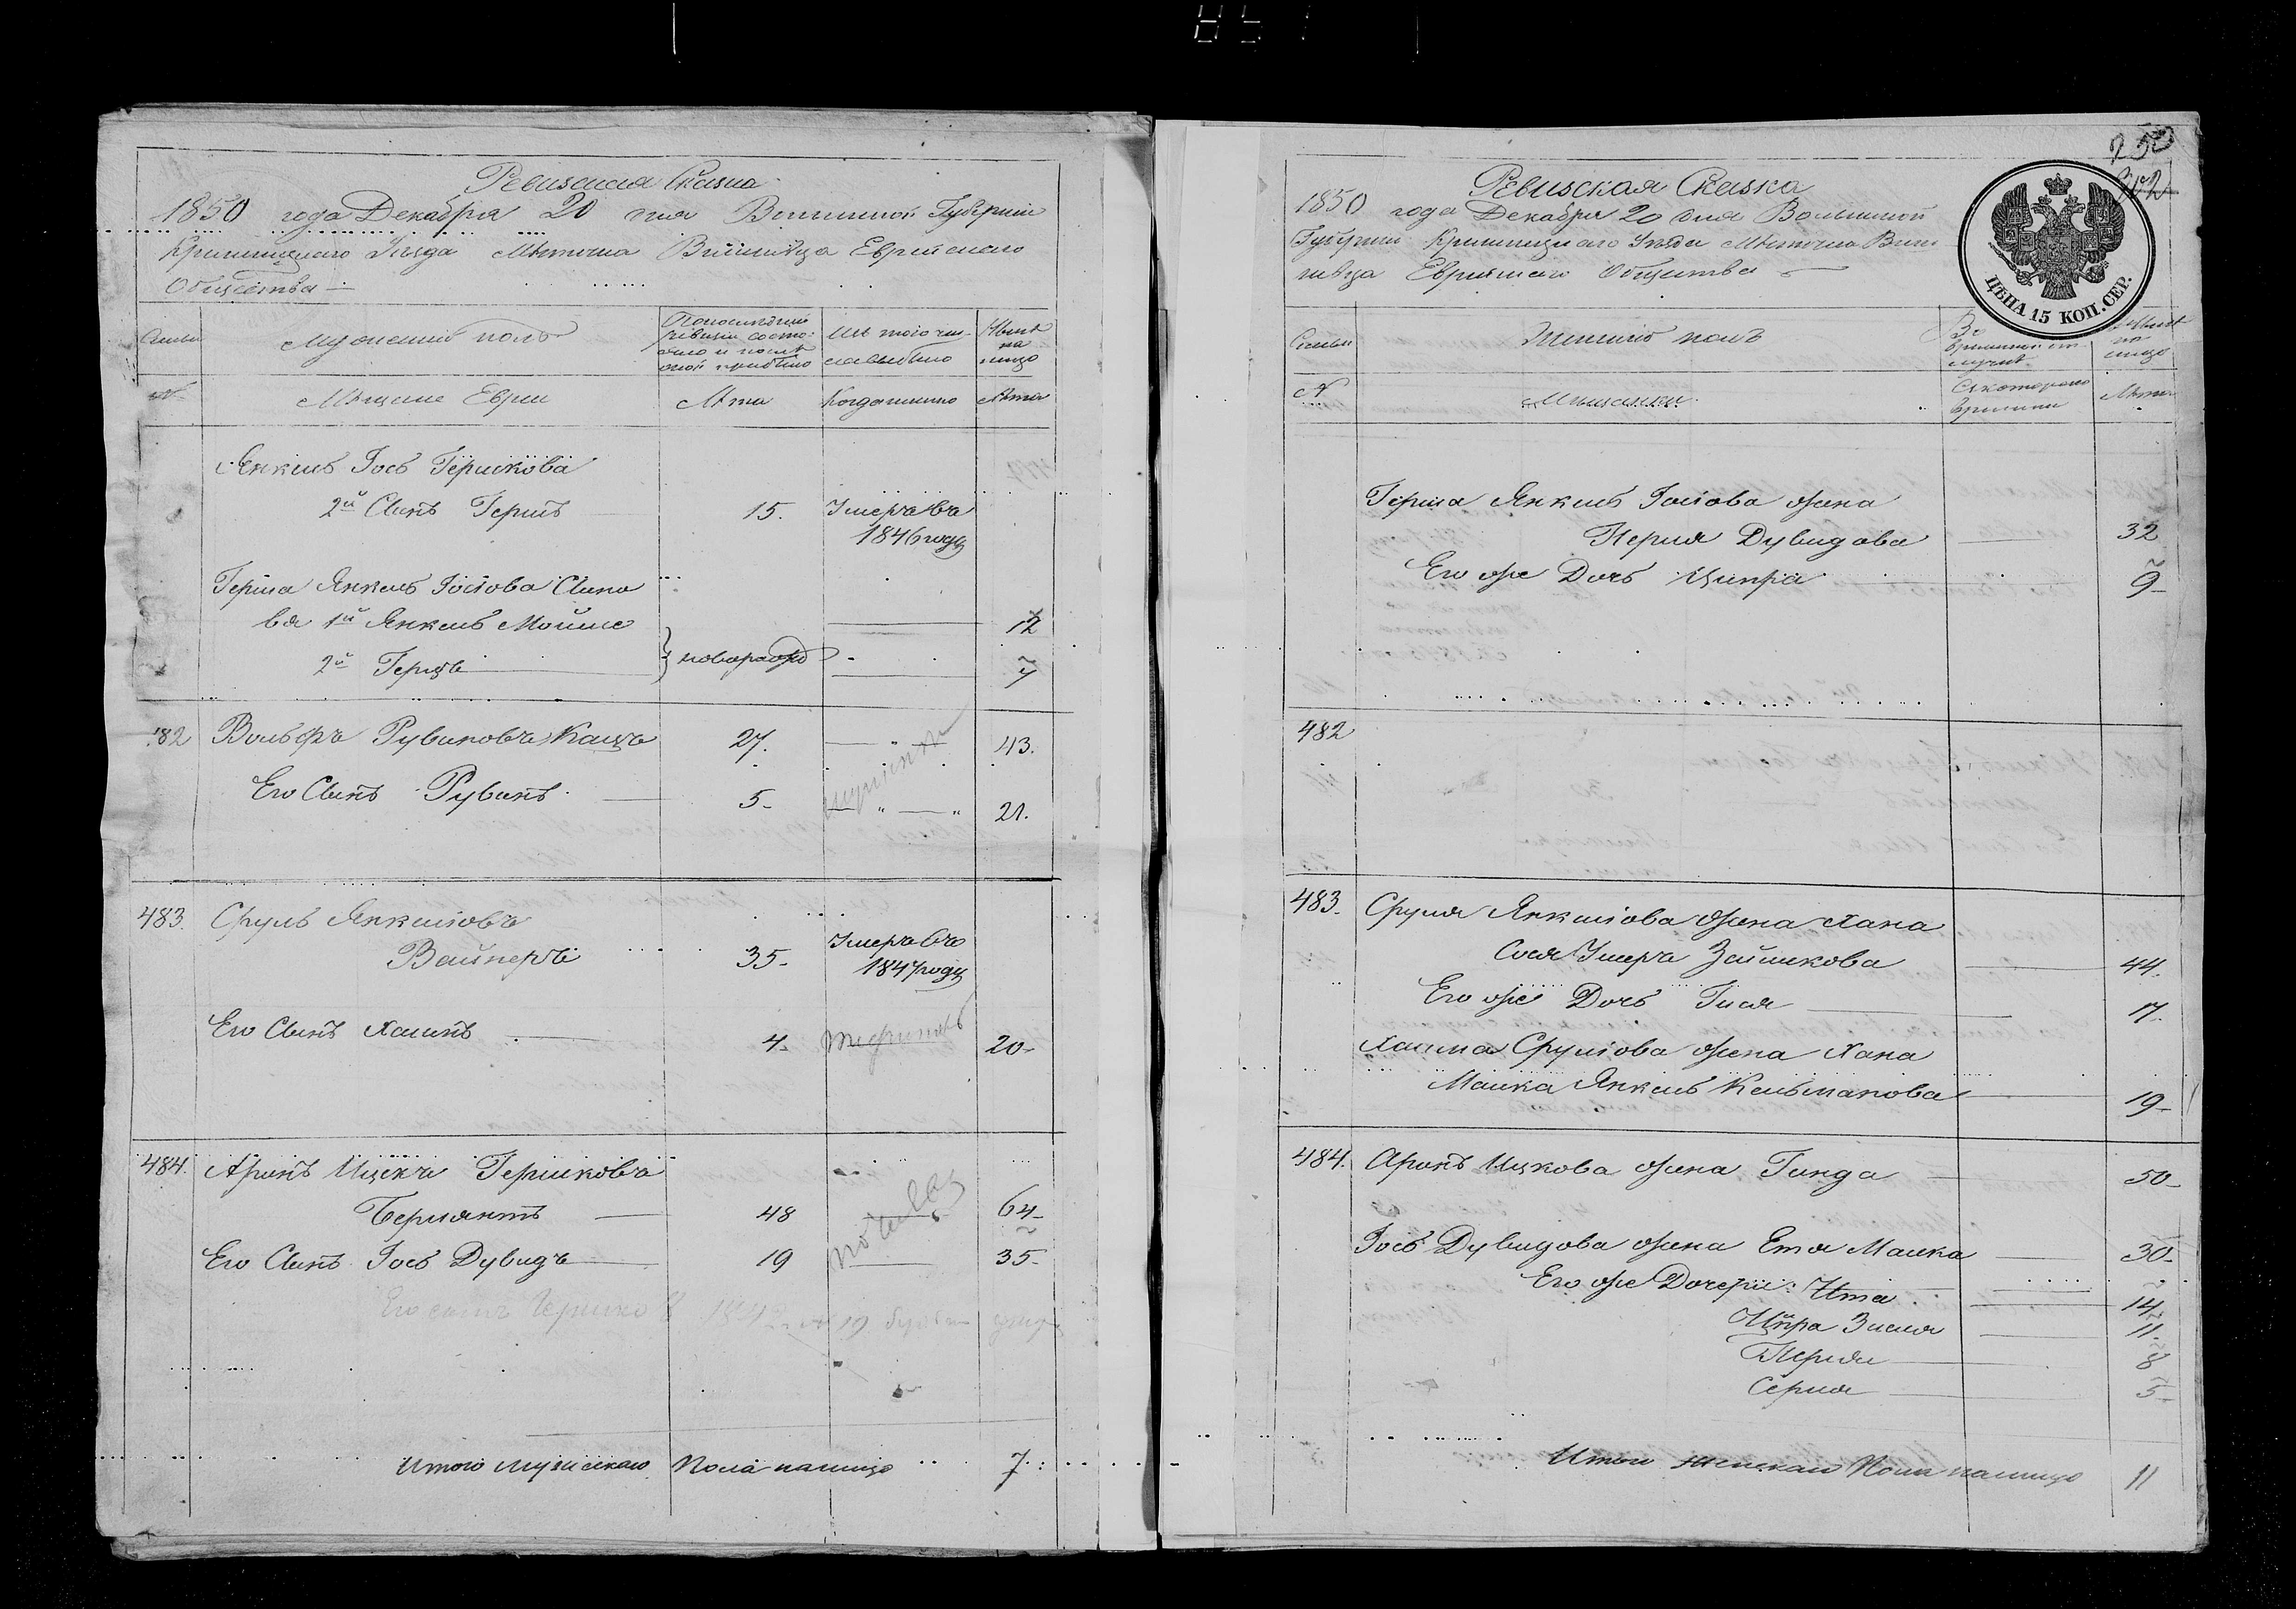 Ревизская Сказка
1850 года Декабря 20 дня Волынской Губернии
Кременецкого Уезда Местечка Вишнивца Еврейского
Общества
Семьи
Мужеский полъ
Изъ того числа выбыло
Ныне на лицо
№
Мещане Евреи
Лета
Когда именно
Лета
Янкель Иось Гершкова
2й Сынъ Гершъ
15.
Умеръ въ
1846 году
Герша Янкель Иосiова Сыно
вья 1й Янкель Мойше
12
2й Герцъ
новорожд
7
482
Вольфъ Рувиновъ Кацъ
27.
43.
Его Сынъ Рувинъ
5
21.
483.
Сруль Янкелiовъ
Вайнеръ
35
Умеръ въ
1847 году
Его Сынъ Хаимъ
4
20
484.
Аронъ Ицекъ Гершковъ
48
64
Его Сынъ Иось Дувидъ
19
35
Итого мужескаго Пола налицо
7
250
Ревизская Сказка
1850 года Декабря 20 дня Волынской
Губернии Кременецкаго Уезда Местечка Виш
нивца Еврейскаго Общества
ЦѢНА 15 КОП. СЕР.
Семьи
Женский полъ
Ныне на лицо
№
Мещанки
Лета
Герша Янкель Иосiова жена
Перля Дувидова
32
Его же Дочь Ципра
9
482
483.
Сруля Янкелiова жена Хана
44.
Его же Дочь Гися
17.
Хаима Срулiова жена Хана
Малка Янкель Кельманова
19
484.
Аронъ Ицкова жена Гинда
50
Иось Дувидова жена Етя Малка
30
Его же Дочери: Ита
14
Ципра Зисля
11
Перля
8
Серля
5
Итого женскаго Пола налицо
11